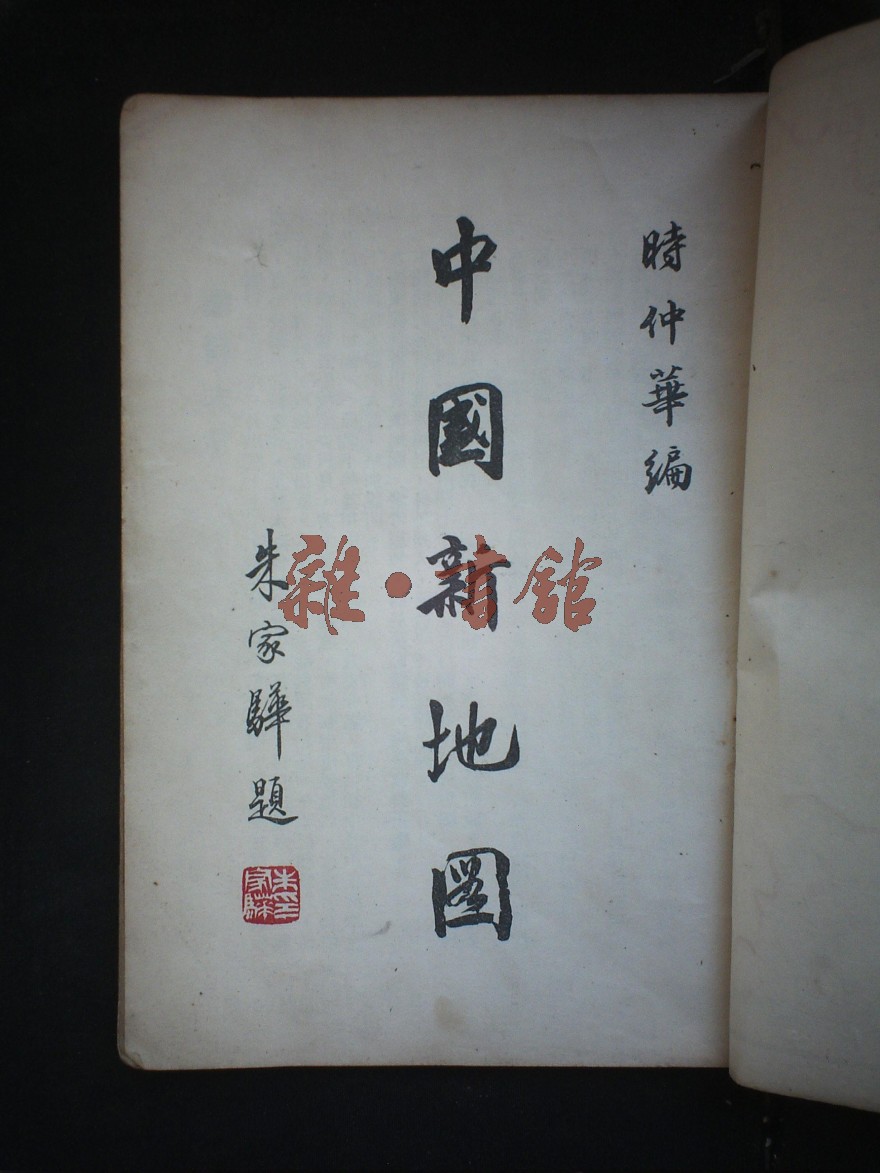 時仲華編
中國新地圖
朱家驊題
雜·書館